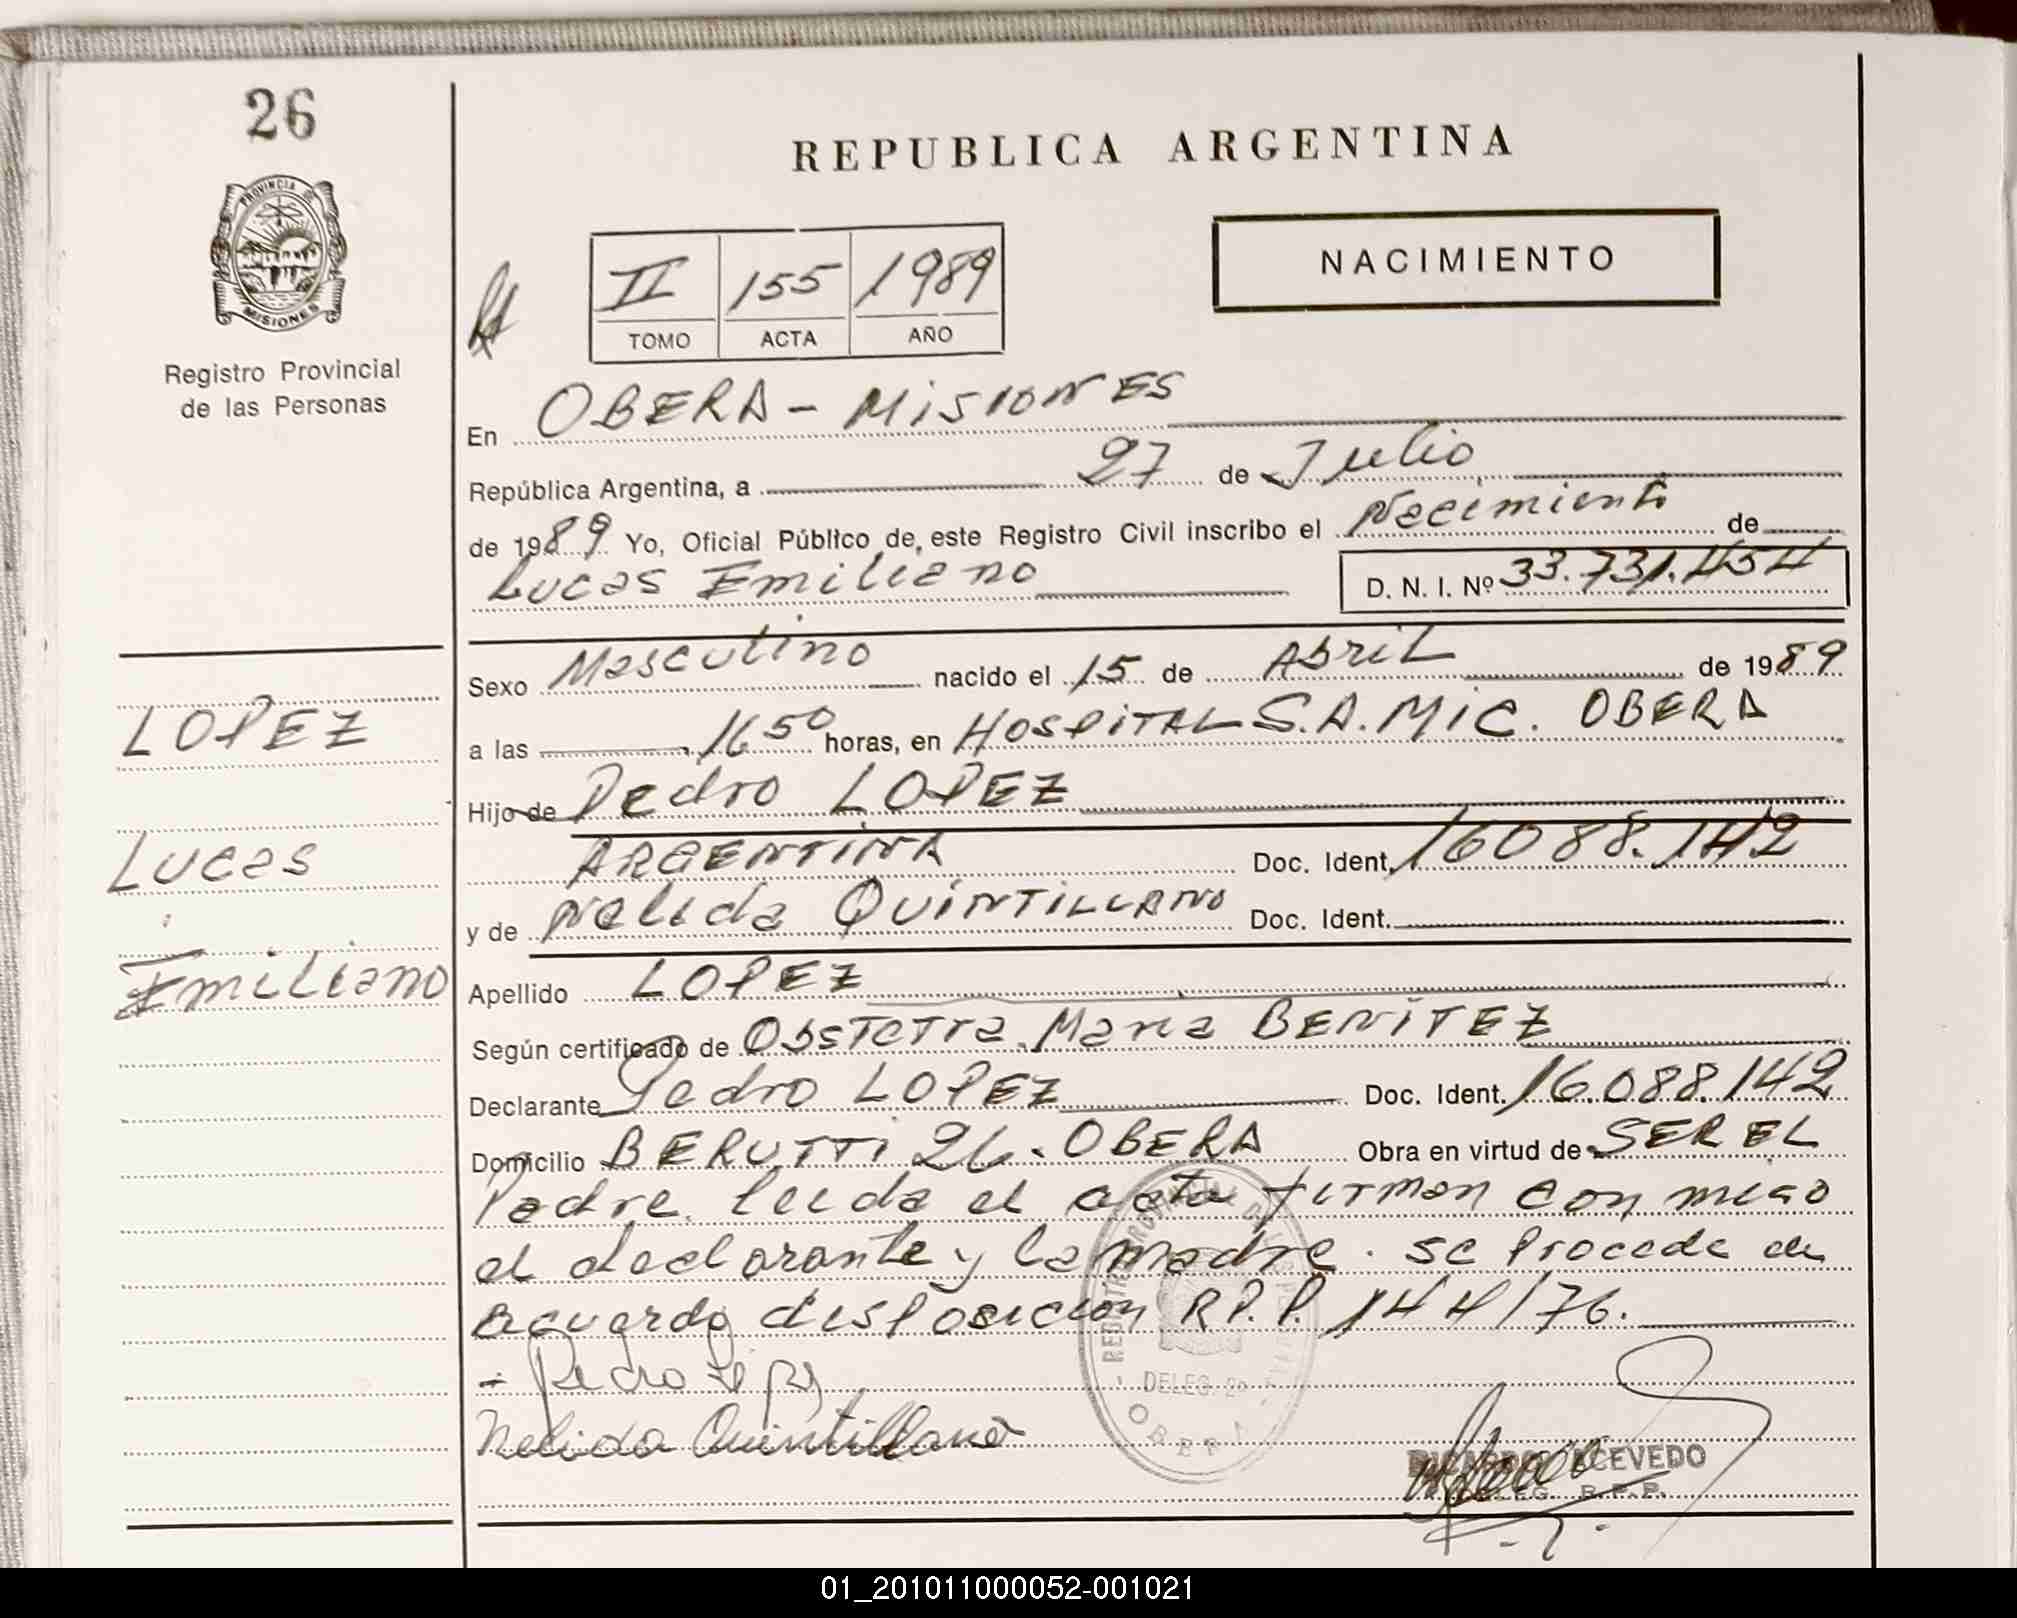 26
PROVINCIA DE
MISIONES
Registro Provincial
de las Personas
LOPEZ
Lucas
Emiliano
REPUBLICA ARGENTINA
II 155 1989
TOMO ACTA AÑO
NACIMIENTO
En OBERA - MISIONES
República Argentina, a 27 de Julio
de 1989 Yo, Oficial Público de este Registro Civil inscribo el Nacimiento de
Lucas Emiliano D. N. I. Nº 33.731.454
Sexo Masculino nacido el 15 de Abril de 1989
a las 16 50 horas, en HOSPITAL S.A.MIC. OBERA
Hijo de Pedro LOPEZ
ARGENTINA Doc. Ident. 16088.142
y de Nelida QUINTILLANO Doc. Ident.
Apellido LOPEZ
Según certificado de Obstetra Maria BENITEZ
Declarante Pedro LOPEZ Doc. Ident. 16.088.142
Domicilio BERUTTI 26. OBERA Obra en virtud de SER EL
Padre. leida el acta firman con migo
el declarante y la madre. se procede de
acuerdo disposicion R.P.P. 144/76.
- Pedro Lopez
Nelida Quintillano
DELEG. 2º
OBERA
RICARDO ACEVEDO
DELEG. R.P.P.
01_201011000052-001021